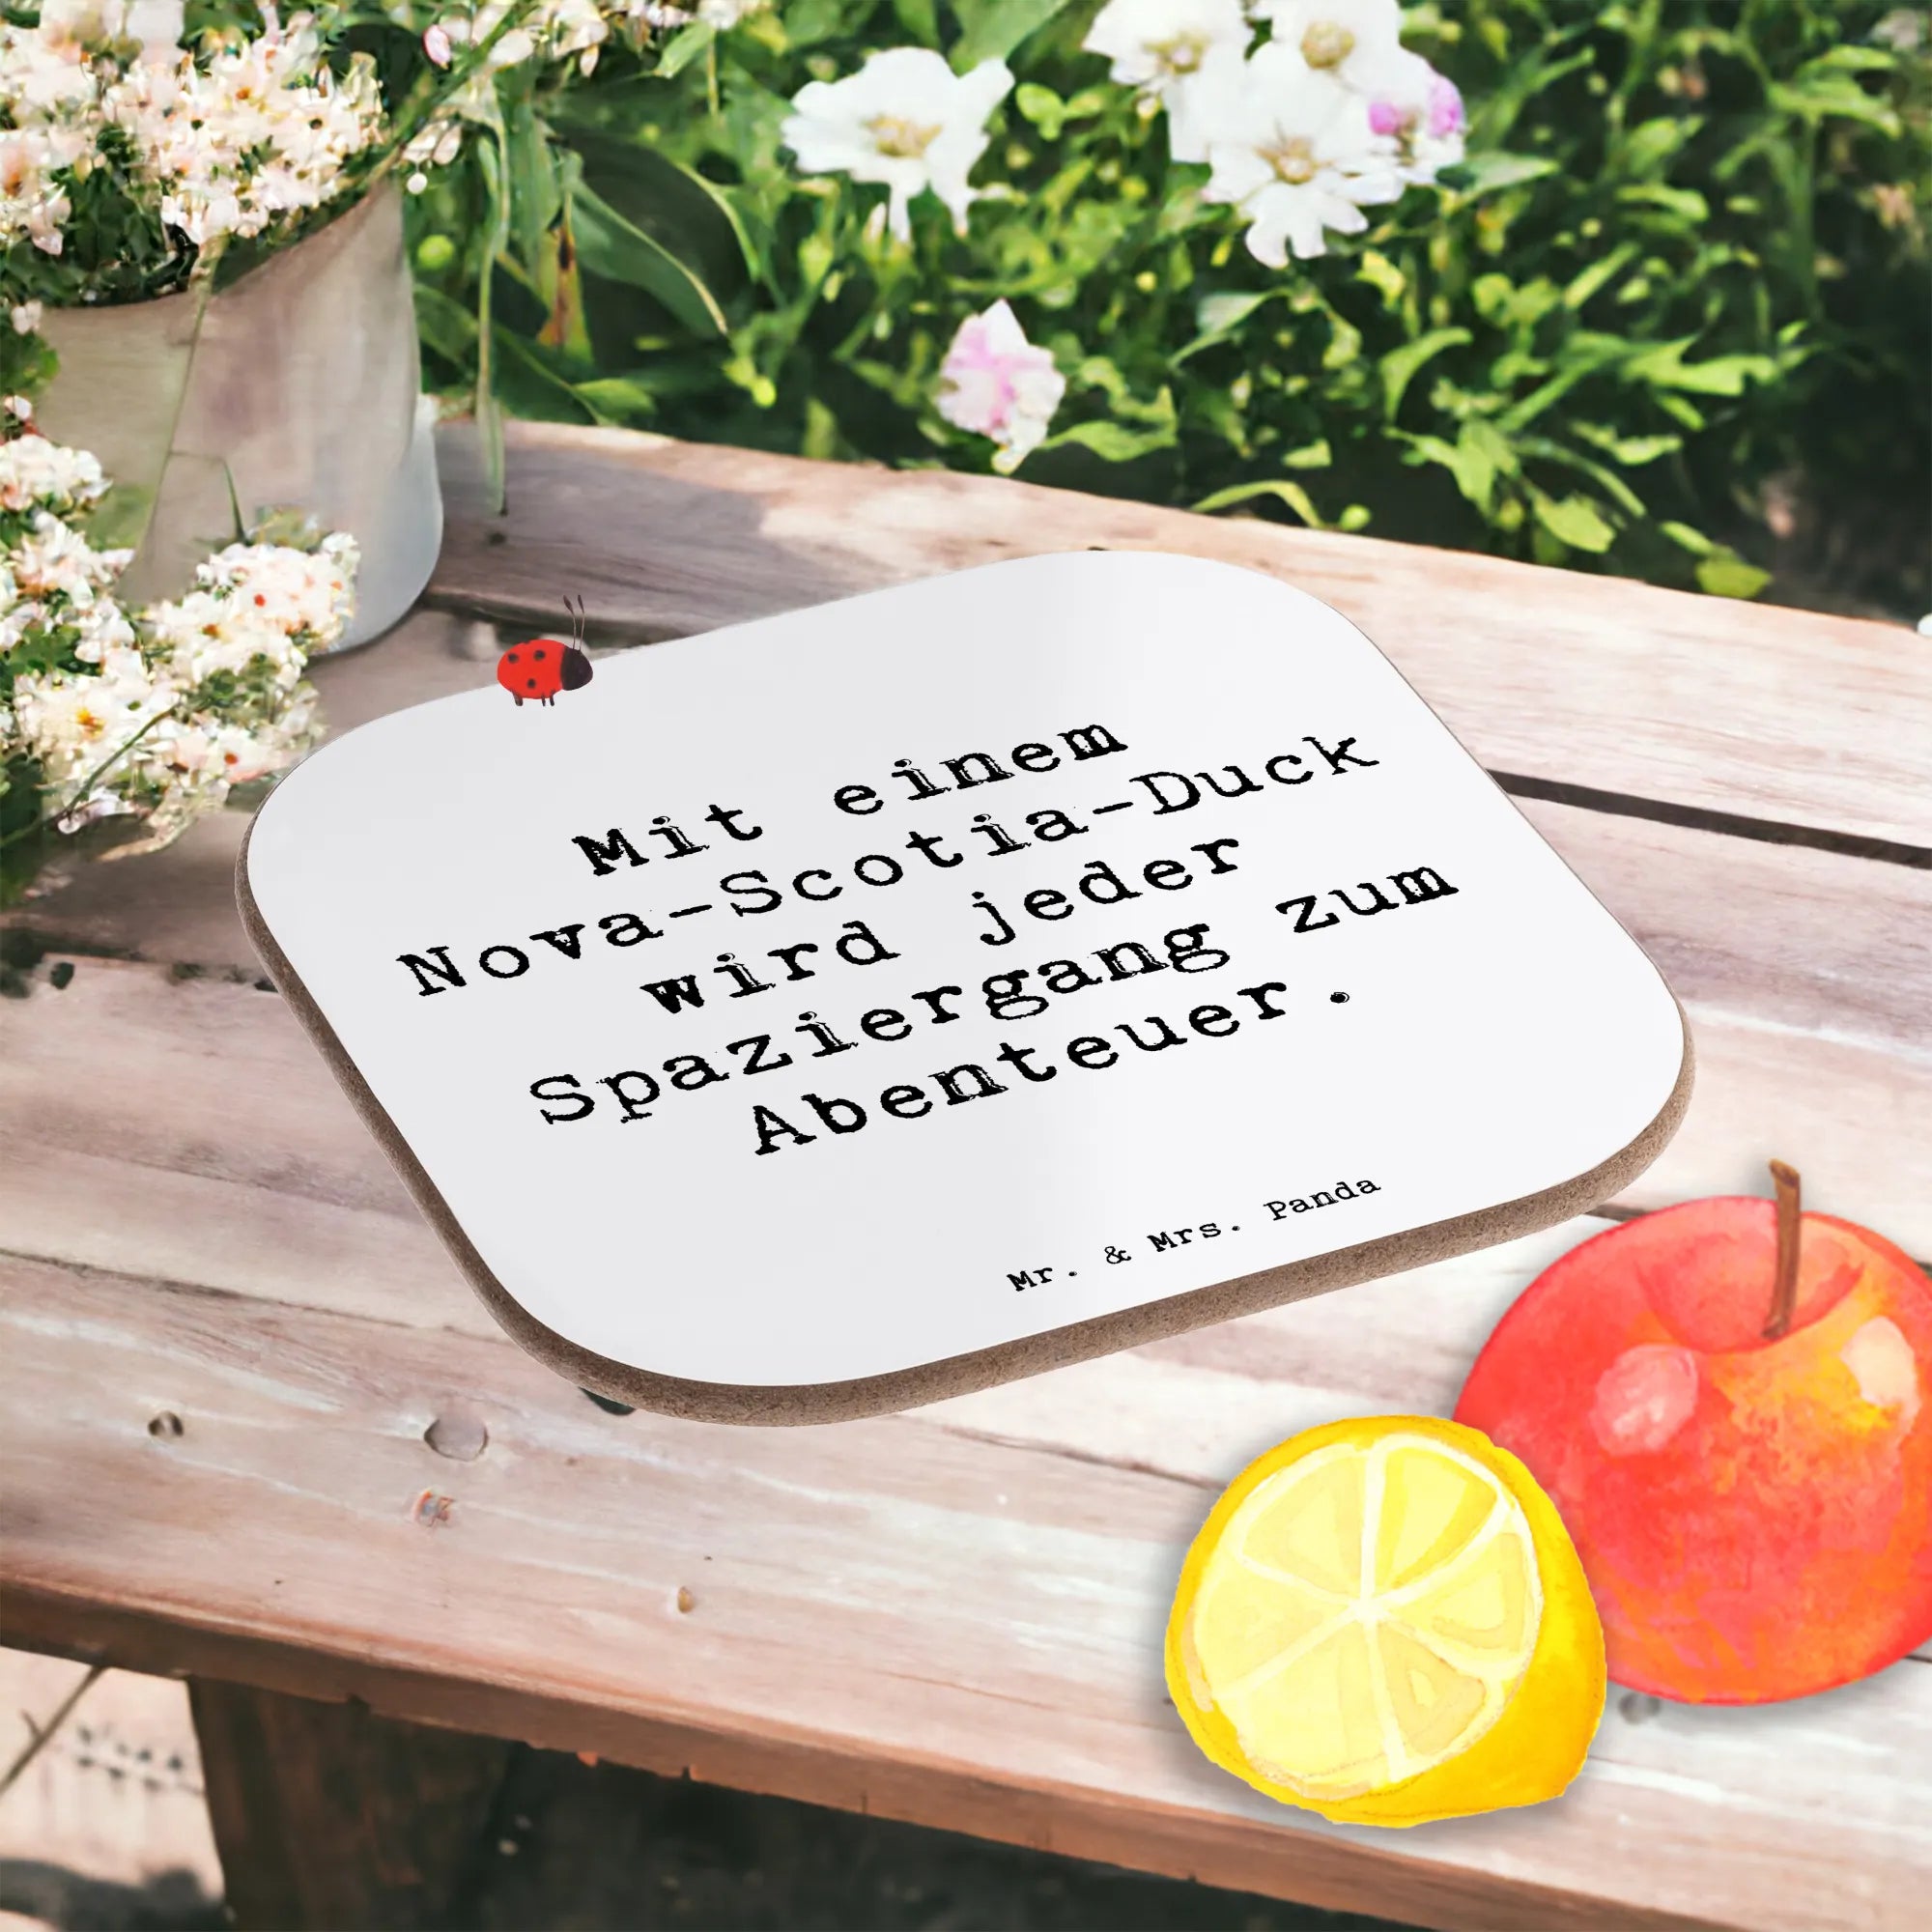 Mit einem
Nova-Scotia-Duck
wird jeder
Spaziergang zum
Abenteuer.
Mr. & Mrs. Panda